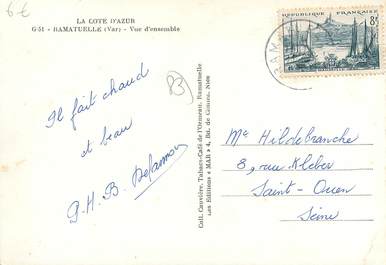 6 €
LA COTE D'AZUR
G-51 - RAMATUELLE (Var) - Vue d'ensemble
83
Il fait chaud
et beau
G.H.B. Delamour
Coll. Cauvière, Tabacs-Café de l'Ormeau, Ramatuelle
Les Editions « MAR » 4, Bd. de Cessole, Nice
REPUBLIQUE FRANÇAISE
8f
RAM
Me Hildebranche
8, rue Kleber
Saint-Ouen
Seine